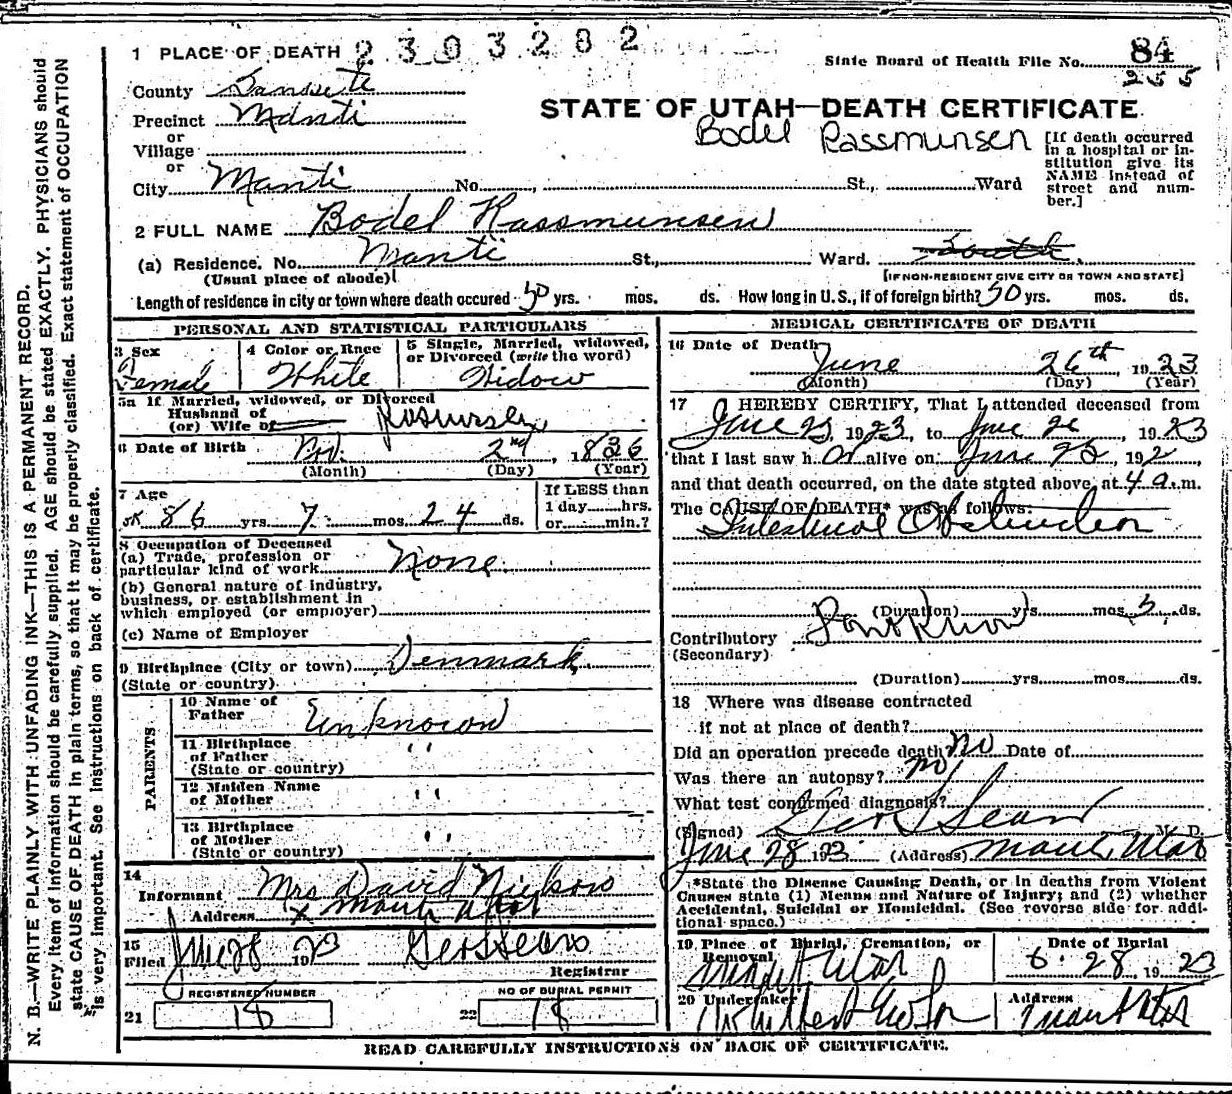 1 PLACE OF DEATH 2303282
State Board of Health File No. 84
255
County Sanpete
STATE OF UTAH—DEATH CERTIFICATE
Precinct Manti
Bodel Rassmunsen
or
Village
or
City Manti No. , St., Ward
[If death occurred
in a hospital or in-
stitution give its
NAME instead of
street and num-
ber.]
2 FULL NAME Bodel Rassmunsen
(a) Residence. No. Manti St., Ward. South
(Usual place of abode)
[IF NON-RESIDENT GIVE CITY OR TOWN AND STATE]
Length of residence in city or town where death occured 50 yrs. mos. ds. How long in U.S., if of foreign birth? 50 yrs. mos. ds.
PERSONAL AND STATISTICAL PARTICULARS
3 Sex
Female
4 Color or Race
White
5 Single, Married, widowed,
or Divorced (write the word)
Widow
5a If Married, widowed, or Divorced
Husband of
(or) Wife of
6 Date of Birth Nov. 2nd, 1836
(Month) (Day) (Year)
7 Age
86 yrs 7 mos. 24 ds.
If LESS than
1 day......hrs.
or......min.?
8 Occupation of Deceased
(a) Trade, profession or
particular kind of work None
(b) General nature of industry,
business, or establishment in
which employed (or employer)
(c) Name of Employer
9 Birthplace (City or town) Denmark
(State or country)
PARENTS
10 Name of
Father Unknown
11 Birthplace
of Father "
(State or country)
12 Maiden Name
of Mother "
13 Birthplace
of Mother "
(State or country)
14
Informant Mrs David
Address Manti Utah
15
Filed June 28 1923 Geo Sears
Registrar
REGISTERED NUMBER
21 18
NO OF BURIAL PERMIT
22 18
MEDICAL CERTIFICATE OF DEATH
16 Date of Death
June 26th, 1923
(Month) (Day) (Year)
17 I HEREBY CERTIFY, That I attended deceased from
June 23, 1923, to June 26, 1923
that I last saw h er alive on June 25, 192 ,
and that death occurred, on the date stated above, at 4 a.m.
The CAUSE OF DEATH* was as follows:
Intestinal Obstruction
(Duration) yrs mos 5 ds.
Contributory Dont Know
(Secondary)
(Duration) yrs mos ds.
18 Where was disease contracted
if not at place of death?
Did an operation precede death no Date of
Was there an autopsy? no
What test confirmed diagnosis?
(Signed) Geo Sears M. D.
June 28 1923 (Address) Manti Utah
*State the Disease Causing Death, or in deaths from Violent
Causes state (1) Means and Nature of Injury; and (2) whether
Accidental, Suicidal or Homicidal. (See reverse side for addi-
tional space.)
19 Place of Burial, Cremation, or
Removal
Manti Utah
Date of Burial
6-28, 1923
20 Undertaker
Address
Manti Utah
READ CAREFULLY INSTRUCTIONS ON BACK OF CERTIFICATE.
N. B.—WRITE PLAINLY WITH UNFADING INK—THIS IS A PERMANENT RECORD.
Every item of information should be carefully supplied. AGE should be stated EXACTLY. PHYSICIANS should
state CAUSE OF DEATH in plain terms, so that it may be properly classified. Exact statement of OCCUPATION
is very important. See instructions on back of certificate.